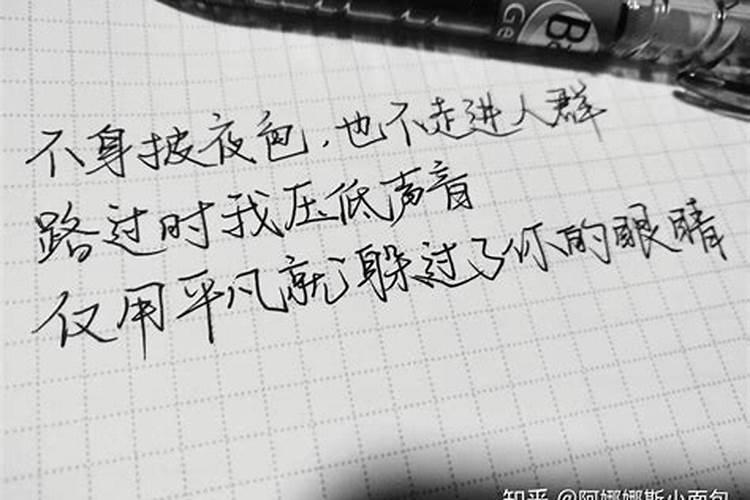 Ba
Ge
不身披夜色,也不走进人群
路过时我压低声音
仅用平凡就躲过了你的眼睛
知乎 @阿娜娜斯小面包